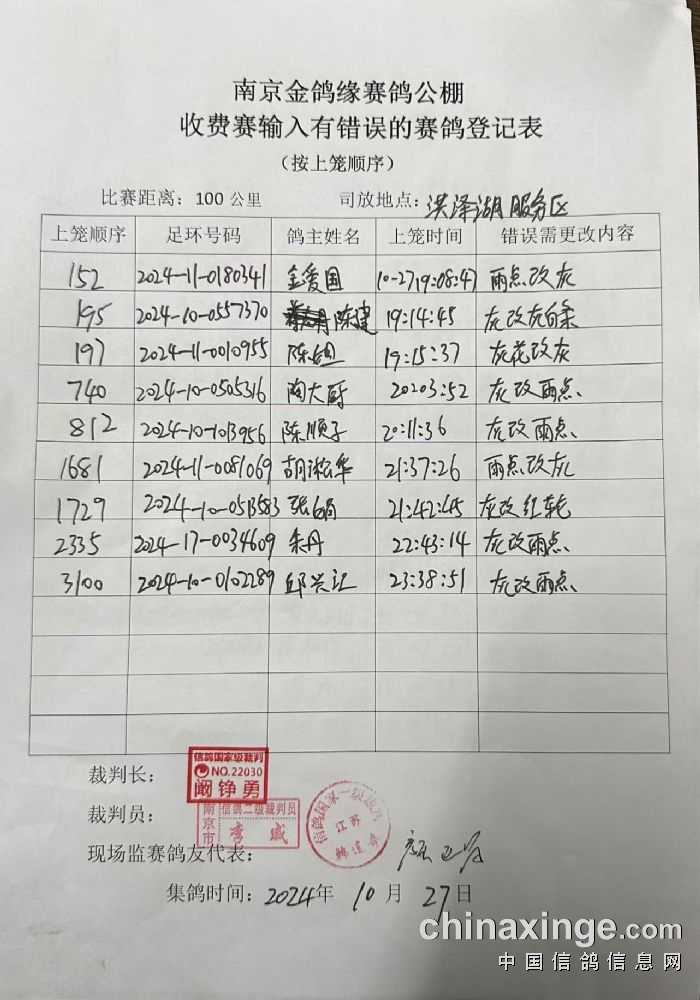 南京金鸽缘赛鸽公棚
收费赛输入有错误的赛鸽登记表
（按上笼顺序）
比赛距离：100公里 司放地点：洪泽湖服务区
上笼顺序 足环号码 鸽主姓名 上笼时间 错误需更改内容
152 2024-11-0180341 金爱国 10-27 19:08:47 雨点改灰
195 2024-10-0557370 陈建 19:14:45 灰改灰白条
197 2024-11-0010955 19:15:37 灰花改灰
740 2024-10-0505316 陶大厨 20203:52 灰改雨点
812 2024-10-1013956 陈顺子 20:11:36 灰改雨点
1681 2024-11-0081069 胡淞华 21:37:26 雨点改灰
1729 2024-10-0513583 张娟 21:42:45 灰改红轮
2335 2024-17-0034609 朱丹 22:43:14 灰改雨点
3100 2024-10-0102289 邱兴江 23:38:51 灰改雨点
裁判长：
信鸽国家级裁判
NO.22030
阚铮勇
裁判员：
南京市 信鸽二级裁判员
李威
信鸽国家一级裁判员
江苏
现场监赛鸽友代表：
集鸽时间：2024年 10月 27日
chinaxinge.com
中国信鸽信息网